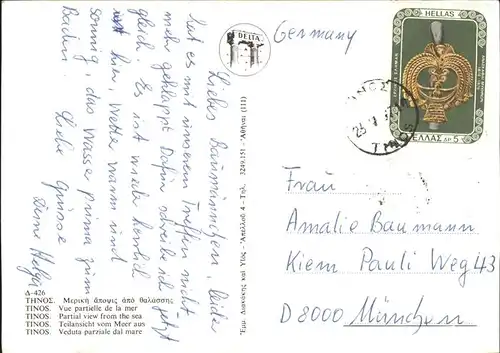 Liebes Baumännchen, leider
hat es mit unserem Treffen nicht
mehr geklappt. Dafür schreibe ich jetzt
gleich. Es ist wieder herrlich
hier, Wetter warm und
sonnig, das Wasser prima zum
Baden.
Liebe Grüsse
Deine Helga
Δ-426
ΤΗΝΟΣ. Μερική ἄποψις ἀπό θαλάσσης
TINOS. Vue partielle de la mer
TINOS. Partial view from the sea
TINOS. Teilansicht vom Meer aus
TINOS. Veduta parziale dal mare
DELTA
Germany
HELLAS
ΕΛΛΑΣ ΔΡ 5
ΤΗΝΟΣ
TINOS
Frau
Amalie Baumann
Kiem Pauli Weg 43
D 8000 München